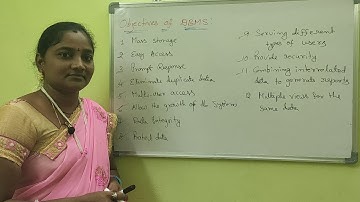 Objectives of DBMS:
1 Mass storage
2 Easy Access
3 Prompt Response
4 Eliminate duplicate data
5 Multi-user access
6 Allow the growth of the systems
7 Data Integrity
8 Protect data
9. Serving different
types of users
10 Provide security
11 Combining interrelated
data to generate reports
12 Multiple views for the
same data